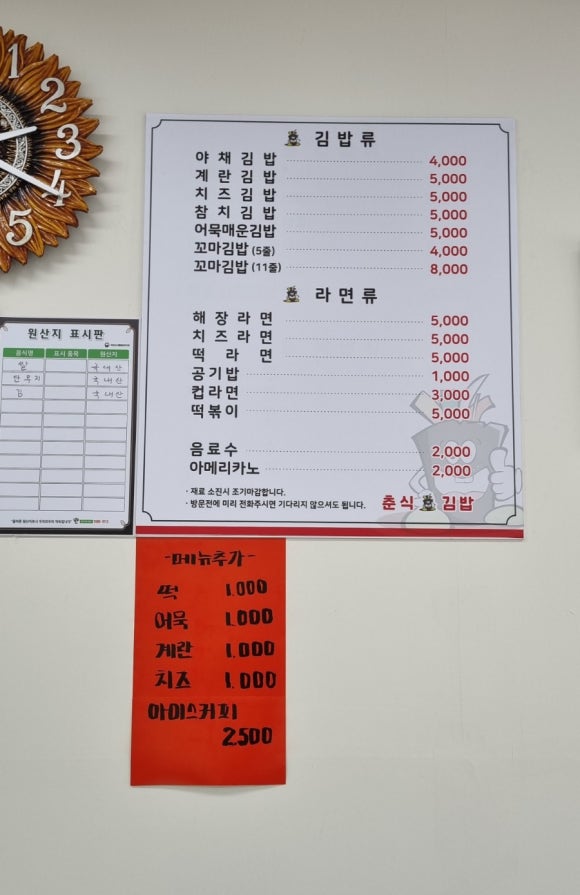 1
2
3
4
5
김밥류
야채김밥 4,000
계란김밥 5,000
치즈김밥 5,000
참치김밥 5,000
어묵매운김밥 5,000
꼬마김밥 (5줄) 4,000
꼬마김밥 (11줄) 8,000
라면류
해장라면 5,000
치즈라면 5,000
떡라면 5,000
공기밥 1,000
컵라면 3,000
떡볶이 5,000
음료수 2,000
아메리카노 2,000
· 재료 소진시 조기마감합니다.
· 방문전에 미리 전화주시면 기다리지 않으셔도 됩니다.
춘식 김밥
원산지 표시판
음식명 표시 품목 원산지
쌀 국내산
단무지 국내산
국내산
-메뉴추가-
떡 1.000
어묵 1.000
계란 1.000
치즈 1.000
아이스커피
2.500